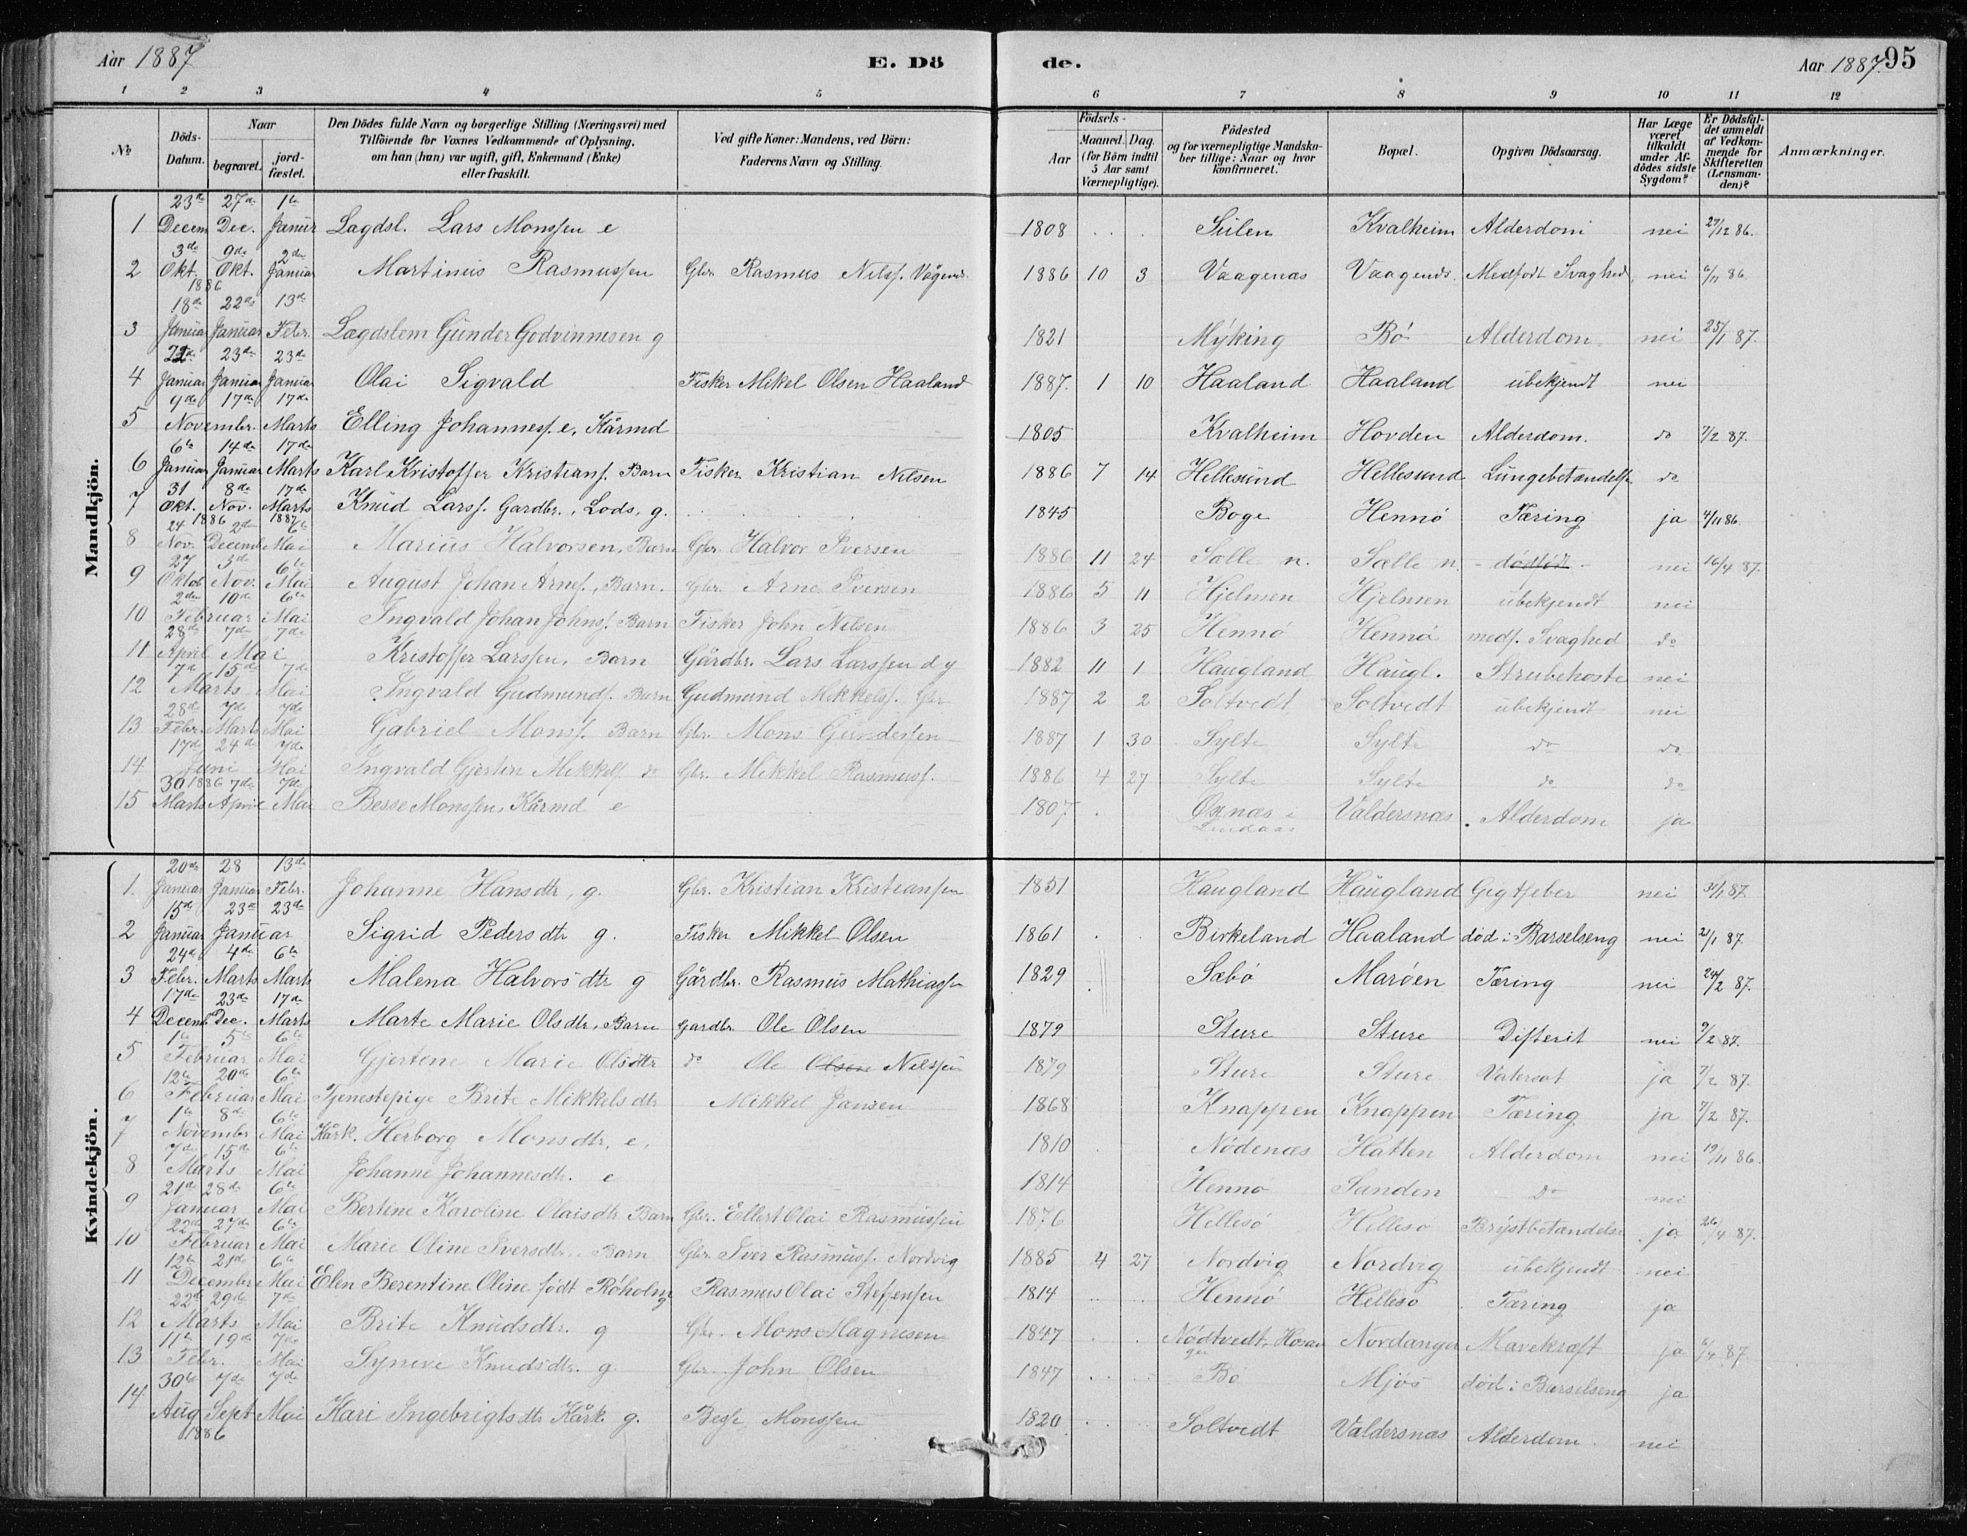 Aar 1887 E. Dö de. Aar 1887. 95
1 2 3 4 5 6 7 8 9 10 11 12
No
Döds-Datum.
Naar
begravet.
jord-fæstet.
Den Dödes fulde Navn og borgerlige Stilling (Næringsvei) med
Tilföiende for Voxnes Vedkommende af Oplysning,
om han (hun) var ugift, gift, Enkemand (Enke)
eller fraskilt.
Ved gifte Koner: Mandens, ved Börn:
Faderens Navn og Stilling.
Födsels-
Aar
Maaned. Dag.
(for Börn indtil
5 Aar samt
Værnepligtige).
Födested
og for værnepligtige Mandska-
ber tillige: Naar og hvor
konfirmeret.
Bopæl.
Opgiven Dödsaarsag.
Har Læge
været
tilkaldt
under Af-
dödes sidste
Sygdom?
Er Dödsfal-
det anmeldt
af Vedkom-
mende for
Skifteretten
(Lensman-
den)?
Anmærkninger.
Mandkjön.
23de 27de 1te
1 Decem Dec. Januar Lagdsl. Lars Monssen e 1808 Sulen Kvalheim Alderdom nei 27/12 86.
3de 9de 2de
2 Okt. Okt. Januar Martinus Rasmussen Gbr. Rasmus Nilss. Vågenes 1886 10 3 Vaagenas Vaagends. Medfødt Svaghed nei 6/11 86
1886
18de 22de 13de
3 Januar Januar Febr. Lægdslem Gunder Godvinnesen g 1821 Myking Bö Alderdom nei 25/1 87.
22de 23de 23de
4 Januar Januar Januar Olai Sigvald Fisker Mikel Olsen Haaland 1887. 1 10 Haaland Haaland ubekjendt nei
9de 17de 17de
5 November. Marts Elling Johanness. e, Kårmd 1805 Kvalheim Hovden Alderdom. do 7/2 87.
6te 14de 17de
6 Januar Januar Marts Karl Kristoffer Kristians. Barn Fisker Kristian Nilsen 1886 7 14 Hellesund Hellesund Lungebetændelse do
31 8de 17de
7 Okt. Nov. Marts Knud Larss. Gardbr., Lods, g. 1845 Boge Hennö Tæring ja 4/11 86.
24 1886 2de 1887 6te
8 Nov. Decemb Mai Marius Halvorsen, Barn Gbr. Halvor Iversen 1886 11 24 Sælle n. Sælle n. - dødfødt - nei 16/4 87.
27 3de 6te
9 Oktob Nov. Mai August Johan Arnes., Barn. Gbr. Arne Iversen 1886 5 11 Hjelmen Hjelmen ubekjendt nei
2den 10de 6te
10 Februar Mai Ingvald Johan Johns. Barn Fisker John Nilsen 1886 3 25 Hennö Hennö medf. Svaghed do
28de 7de 7de
11 April Mai Kristoffer Larssen, Barn Gårdbr. Lars Larssen d y 1882 11 1 Haugland Haugl. Strubehoste nei
7de 15de 7de
12 Marts Mai Ingvald Gudmunds. Barn Gudmund Mikkels. Gbr. 1887 2 2 Soltvedt Soltvedt ubekjendt nei
28de 7de 7de
13 Febr. Marts Mai Gabriel Monss. Barn Gbr. Mons Gundersen 1887 1 30 Sylte Sylte do do
17de 24de 7de
14 Juni Mai Ingvald Gjertin Mikkels. do Gbr. Mikkel Rasmuss. 1886 4 27 Sylte Sylte do do
30 1886 7de 7de
15 Marts April Mai Besse Monssen, Kårmd e 1807 Oxnæs i Valdersnæs. Alderdom ja
Lindaas
Kvindekjön.
20de 28 13de
1. Januar Januar Febr. Johanne Hansdtr, g. Gbr. Kristian Kristianssen 1851 Haugland Haugland Gigtfeber nei 31/1 87.
15de 23de 23de
2 Januar Januar Sigrid Pedersdtr g. Fisker Mikkel Olsen 1861 Birkeland Haaland død i Barselseng nei 21/1 87.
24de 4de 6te
3 Febr. Marts Marts Malena Halvorsdtr g Gårdbr. Rasmus Mathiassen 1829 Sæbø Marøen Tæring nei 24/2 87.
17de 23de 17de
4 Decemb Dec. Marts Marte Marie Olsdtr, Barn Gardbr. Ole Olsen 1879 Sture Sture Difterit nei 7/2 87.
1te 5te 6te
5 Februar Mai Gjertine Marie Olsdtr do Ole Olsen Nilssen 1879 Sture Sture Vatersot ja 7/2 87.
12te 20de 6te
6 Februar Mai Tjenestepige Brite Mikkelsdtr Mikkel Jansen 1868 Knappen Knappen Tæring ja 7/2 87.
1te 8de 6te
7 Novembr Mai Kårk. Herborg Monsdtr, e. 1810 Nödenæs Hatten Alderdom nei 19/11 86.
7de 15de 6te
8 Marts Mai Johanne Johannesdtr. e 1814 Hennö Sanden do nei
21de 28de 6te
9 Januar Mai Bertine Karoline Olaisdtr Barn Gbr. Ellert Olai Rasmussen 1876 Hellesö Helleso Brystbetændelse ja 26/4 87.
22de 27de 6te
10 Februar Mai Marie Oline Iversdtr. Barn Gbr Iver Rasmuss. Nordvig 1885 4 27 Nordvig Nordvig ubekjendt nei
12te 21de 6te
11 December Mai Elen Berentine Oline født Røholm g Rasmus Olai Steffensen 1814 Hennö Helleso Tæring ja
22de 29de 7de
12 Marts Mai Brite Knudsdtr. g Gbr. Mons Magnesen 1847 Nødtvedt, Hosan Nordanger Mavekræft ja 6/4 87.
ger
11te 19de 7de
13 Febr. Mai Syneve Knudsdtr. g. Gbr. John Olsen 1847 Bö Mjös død i Barselseng ja
30te 7de 7de
14 Aug Sept Mai Kari Ingebrigtsdtr Kårk. g. Besse Monssen 1820 Soltvedt Valdersnæs Alderdom. nei
1886